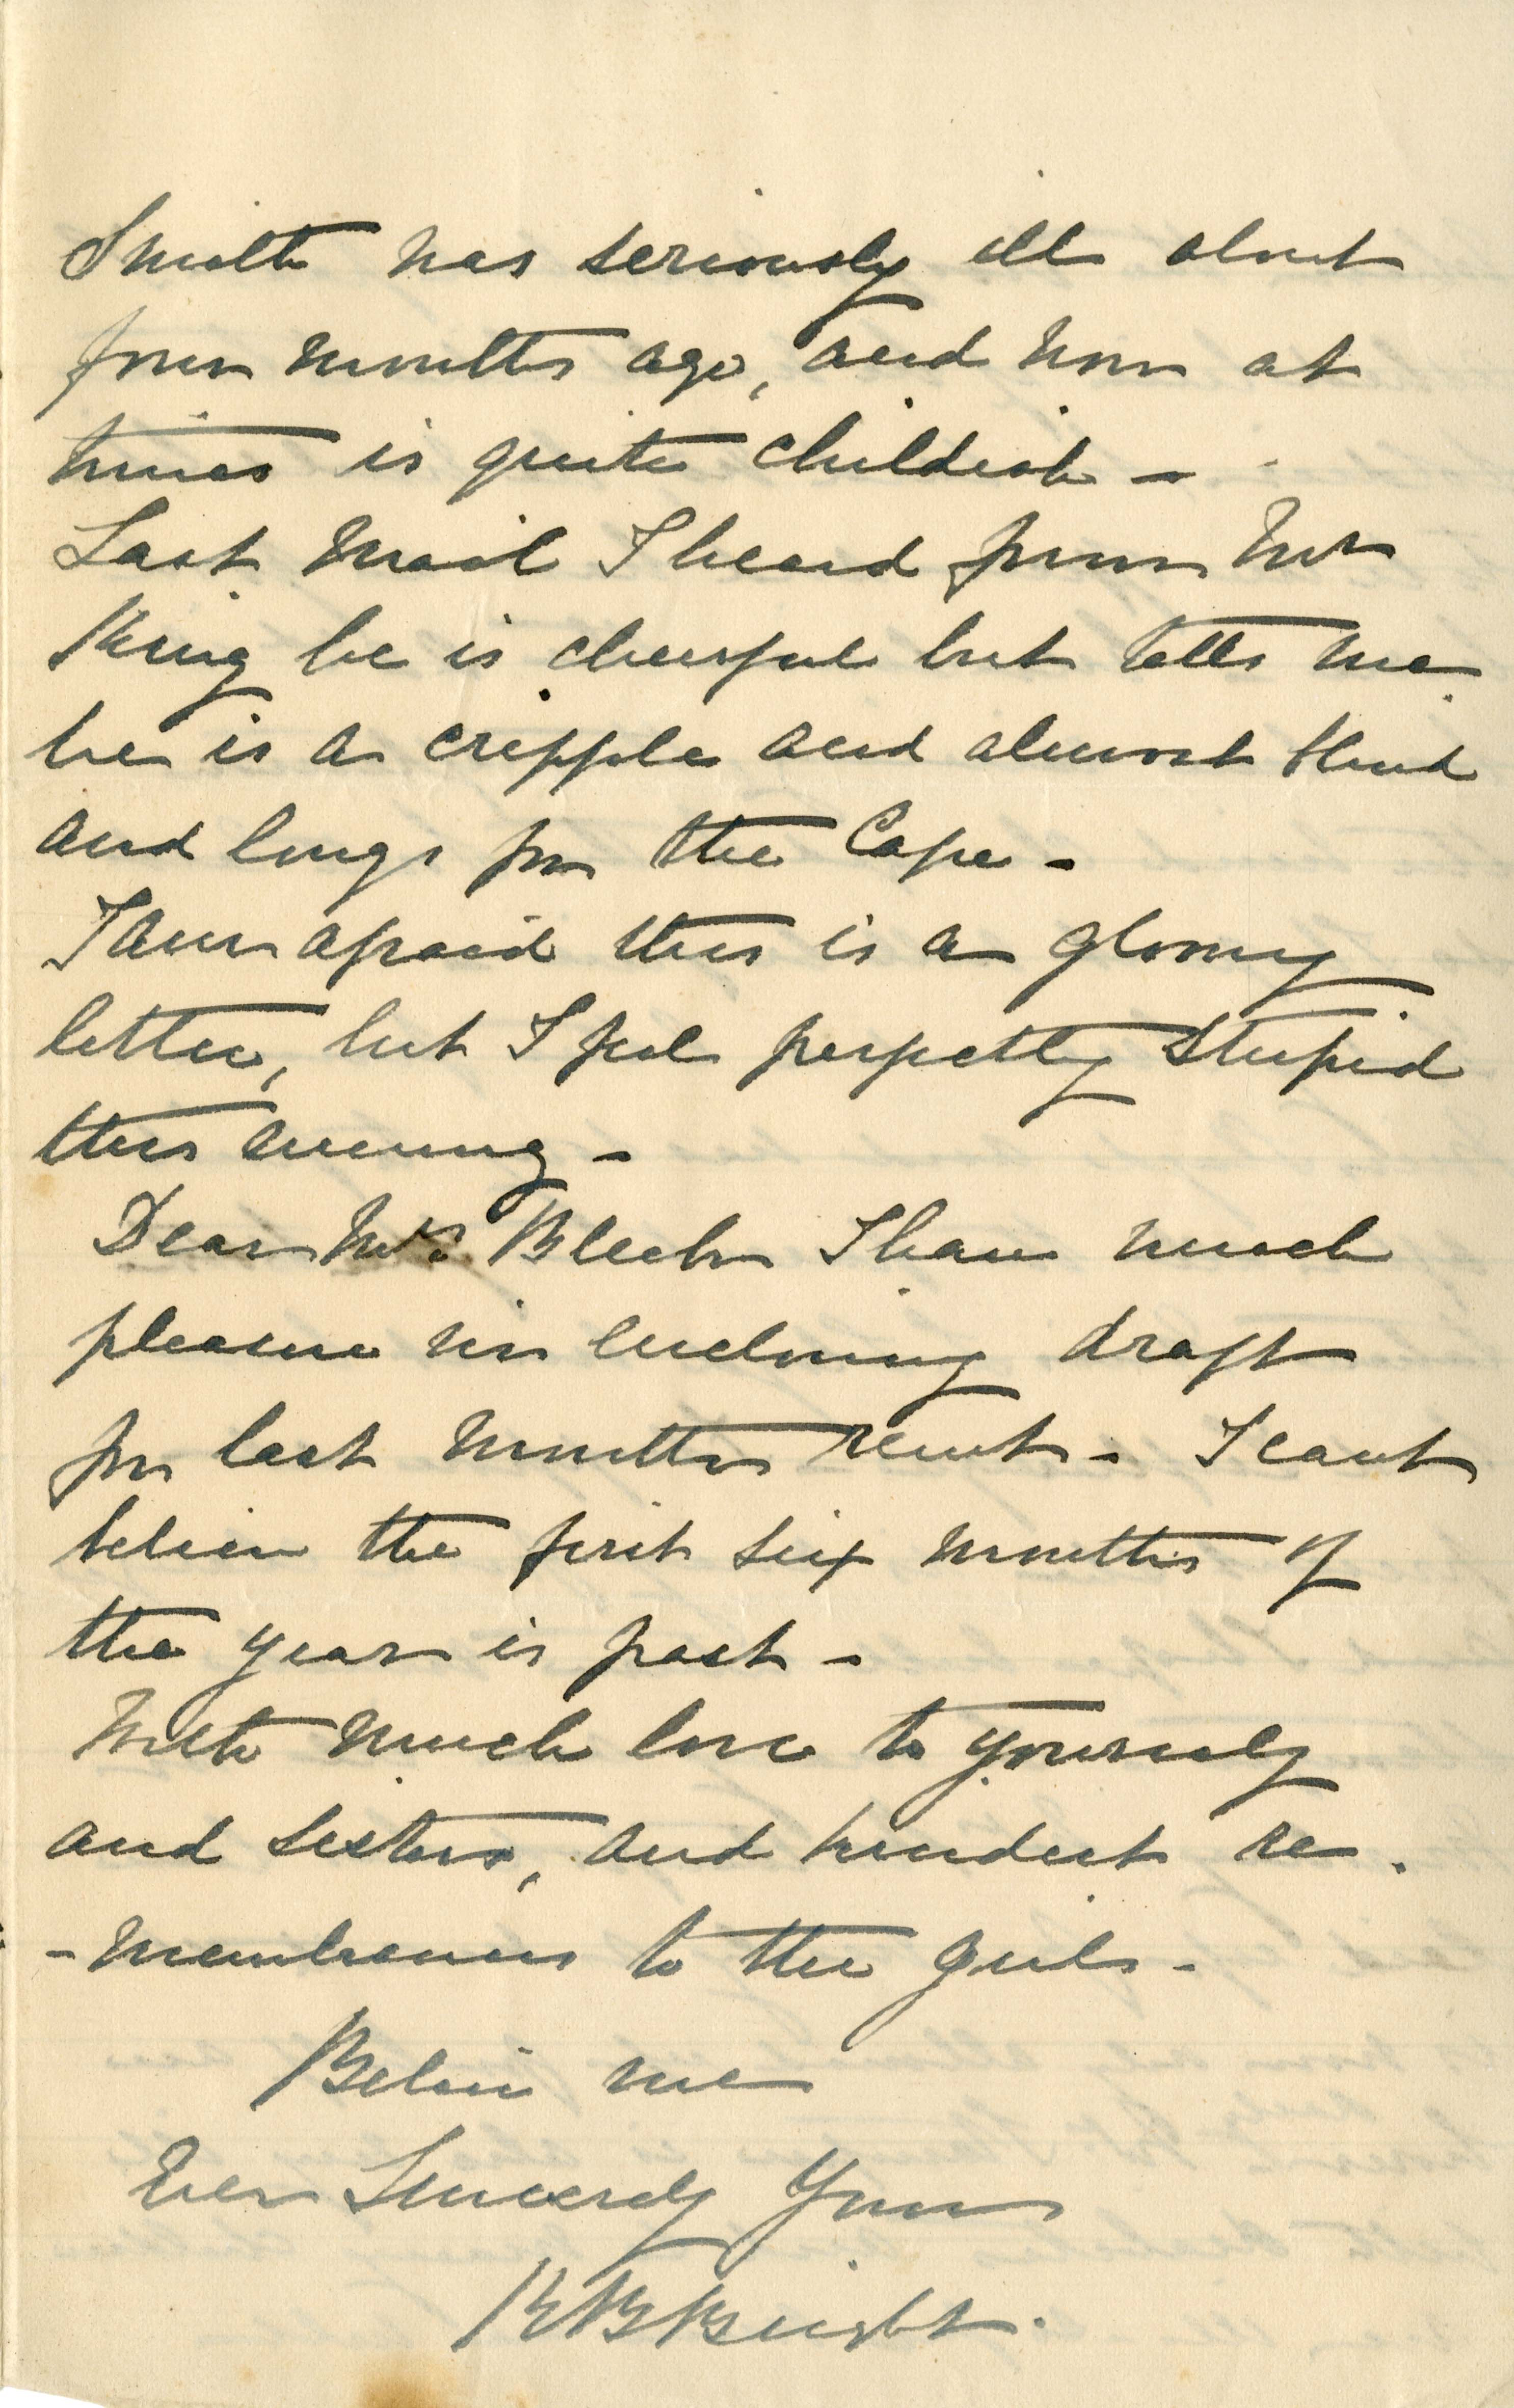 Smith was seriously ill about
four months ago, and now at
times is quite childish -
Last Mail I heard from Mr
King he is cheerful but tells me
he is a cripple and almost blind
and longs for the Cape -
I am afraid this is a gloomy
letter, but I feel perfectly stupid
this evening -
Dear Mrs Bleek I have much
pleasure in enclosing draft
for last months rent - I cant
believe the first six months of
the year is past -
With much love to yourself
and Sisters, and kindest re-
-membrances to the girls -
Believe me
Ever Sincerely Yours
Knight.